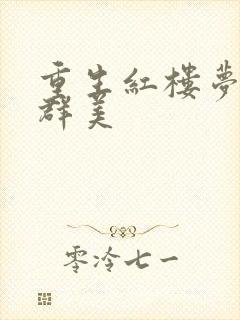 重生紅樓夢
群美
零泠七一